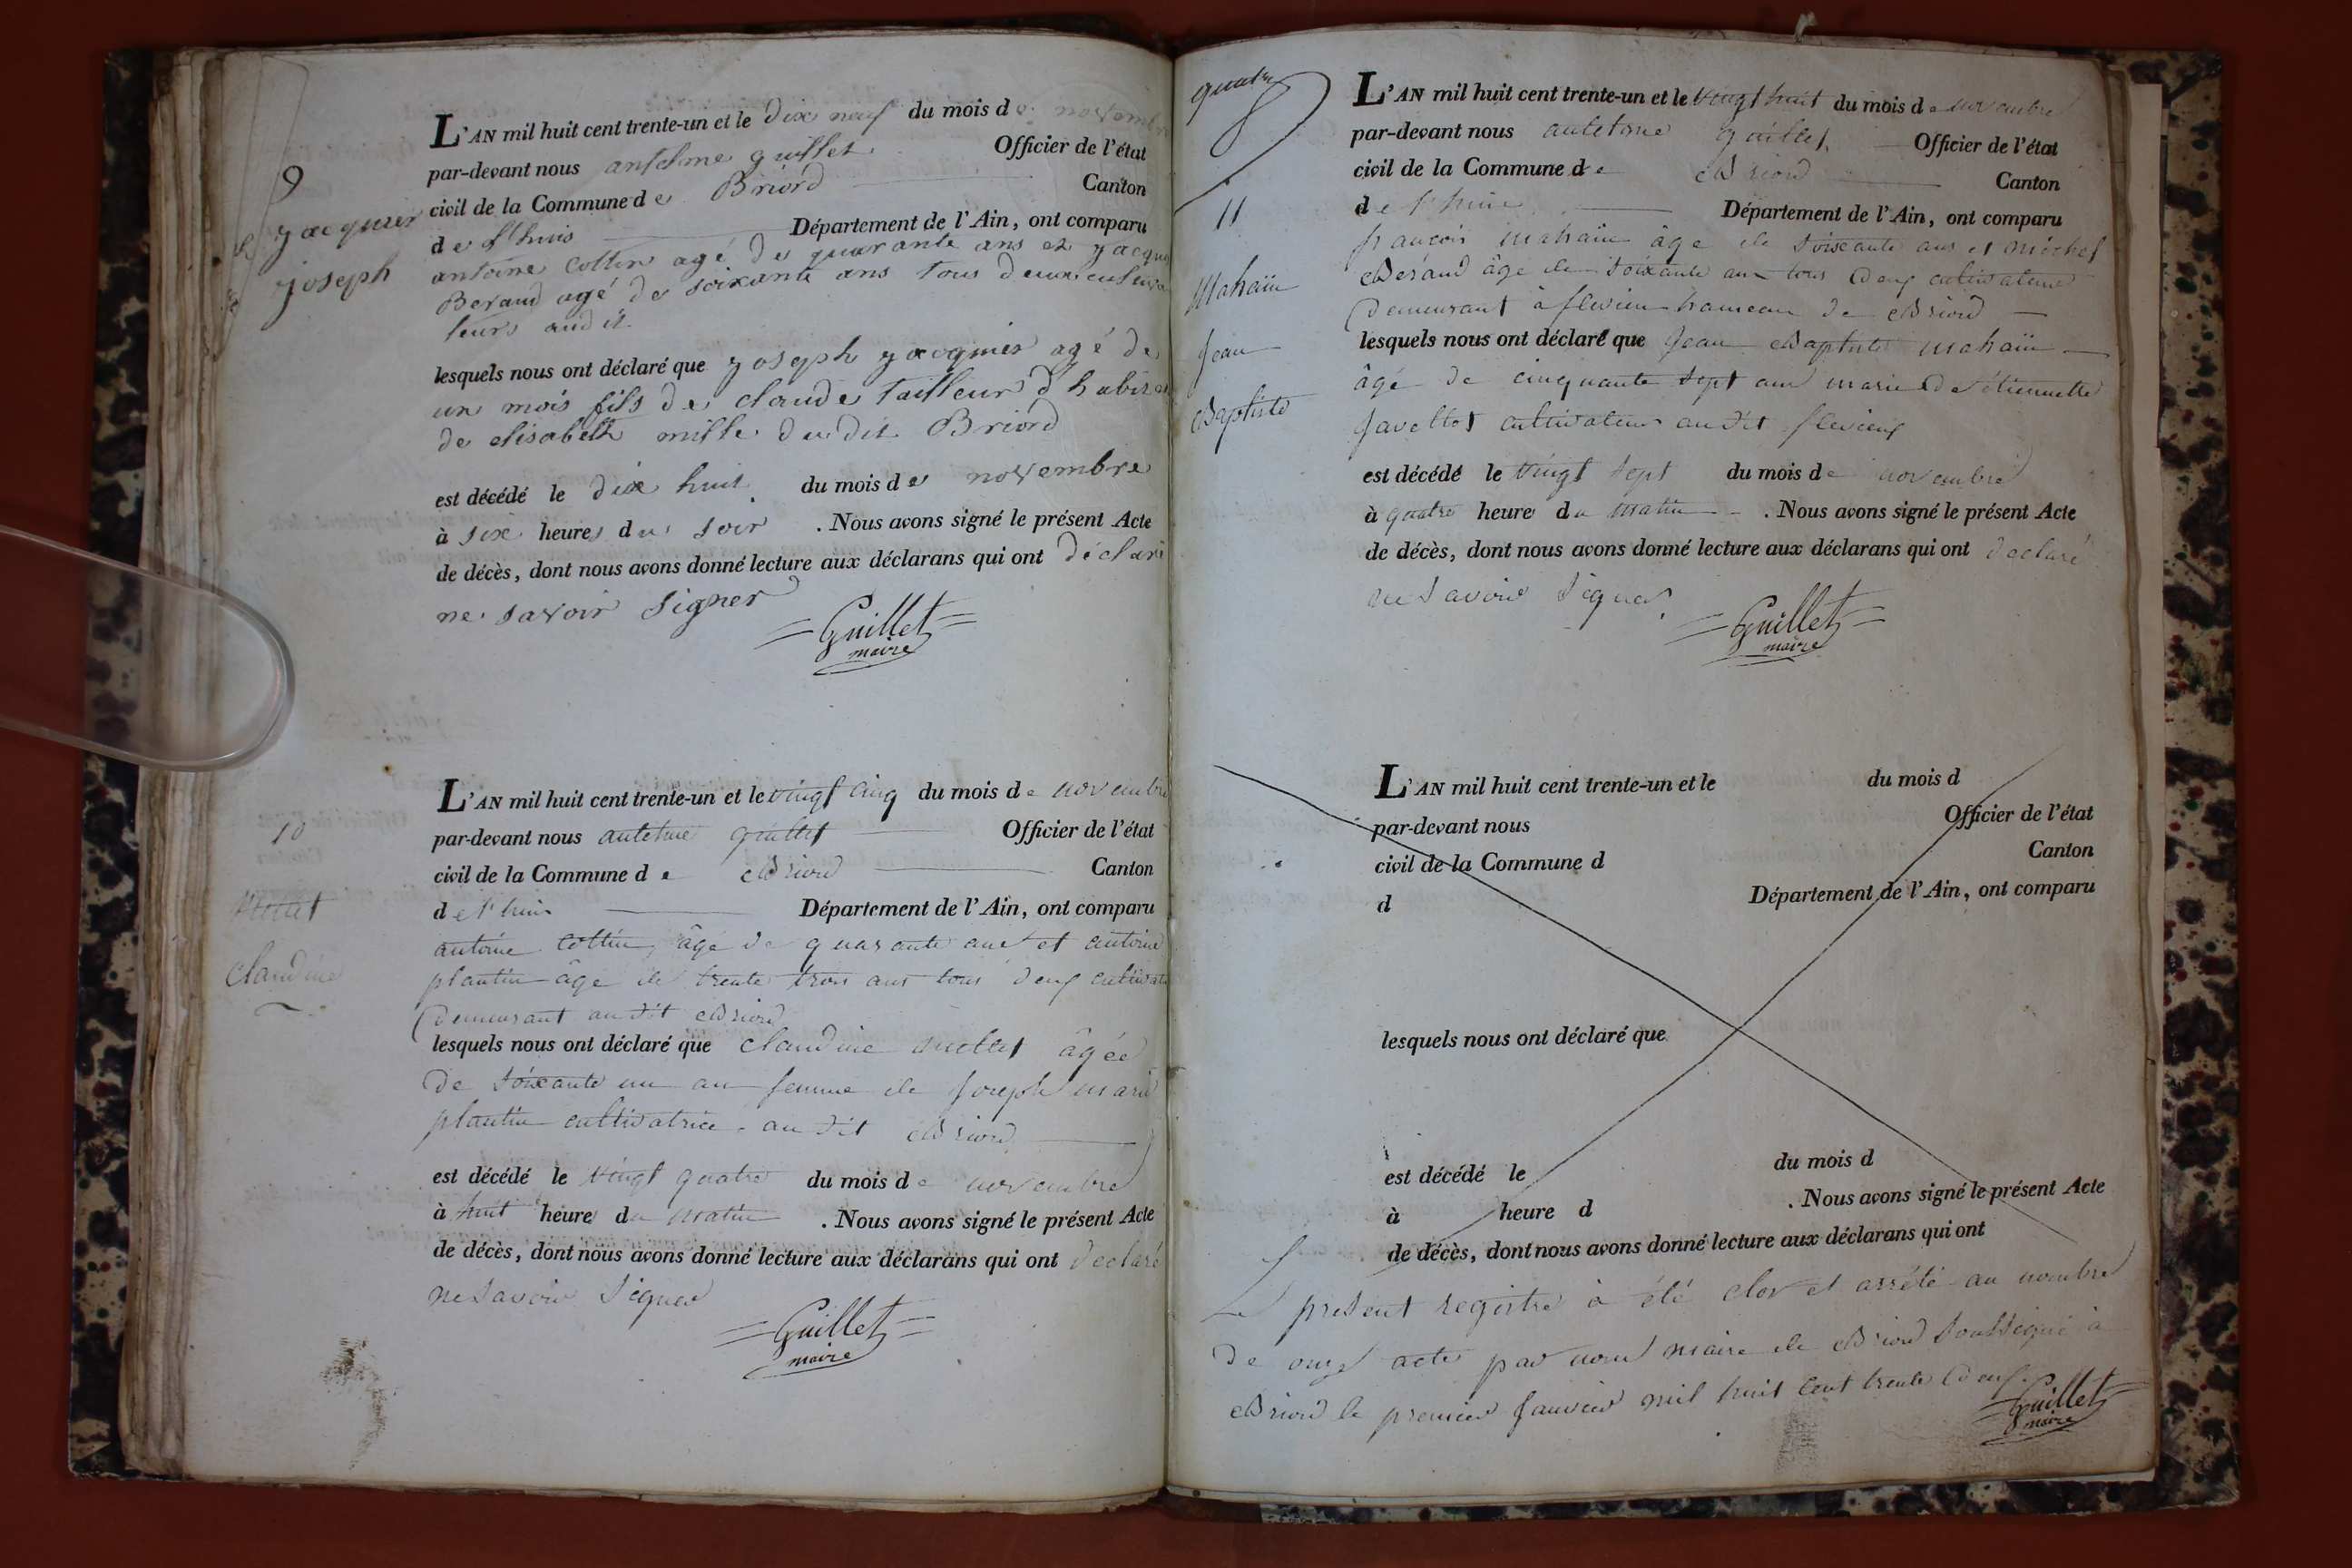 9
yacquier
joseph
L'AN mil huit cent trente-un et le dix neuf du mois de novembre
par-devant nous antelme guillet Officier de l'état
civil de la Commune de Briord Canton
de l'huis Département de l'Ain, ont comparu
antoine Cottin agé de quarante ans et
Beraud agé de soixante ans tous deux cultiva
teurs audit
lesquels nous ont déclaré que yoseph yacquier agé de
un mois fils de claude tailleur d'habits
de elisabeth mille dudit Briord
est décédé le dix huit du mois de novembre
à six heures du soir . Nous avons signé le présent Acte
de décès, dont nous avons donné lecture aux déclarans qui ont déclaré
ne savoir signer
Guillet
maire
10
Claudine
L'AN mil huit cent trente-un et le vingt cinq du mois de novembre
par-devant nous antelme guillet Officier de l'état
civil de la Commune de Briord Canton
de l'huis Département de l'Ain, ont comparu
antoine Cottin, âgé de quarante ans et antoine
plantin âgé de trente trois ans tous deux cultivat
Demeurant audit Briord
lesquels nous ont déclaré que Claudine âgée
De soixante un an femme de Joseph marie
plantin cultivatrice audit Briord
est décédé le vingt quatre du mois de novembre
à huit heures du matin . Nous avons signé le présent Acte
de décès, dont nous avons donné lecture aux déclarans qui ont declaré
ne savoir signer
Guillet
maire
11
Mahaiu
Jean
Baptiste
L'AN mil huit cent trente-un et le vingt huit du mois de novembre
par-devant nous antelme guillet Officier de l'état
civil de la Commune de Briord Canton
de l'huis Département de l'Ain, ont comparu
françois mahaiu âgé de soixante ans et michel
Beraud âgé de soixante ans tous Deux cultivateurs
Demeurant à flevieu hameau de Briord
lesquels nous ont déclaré que Jean Baptiste mahaiu
âgé de cinquante sept ans marie de étiennette
Javellot cultivateur audit flevieux
est décédé le vingt sept du mois de novembre
à quatre heure du matin . Nous avons signé le présent Acte
de décès, dont nous avons donné lecture aux déclarans qui ont declaré
ne savoir signer
Guillet
maire
L'AN mil huit cent trente-un et le du mois d
par-devant nous Officier de l'état
civil de la Commune d Canton
d Département de l'Ain, ont comparu
lesquels nous ont déclaré que
est décédé le du mois d
à heure d . Nous avons signé le présent Acte
de décès, dont nous avons donné lecture aux déclarans qui ont
Le present registre à été clos et arrété au nombre
De onze acte par nous maire de Briord soussigné à
Briord le premier Janvier mil huit cent trente Deux.
Guillet
maire